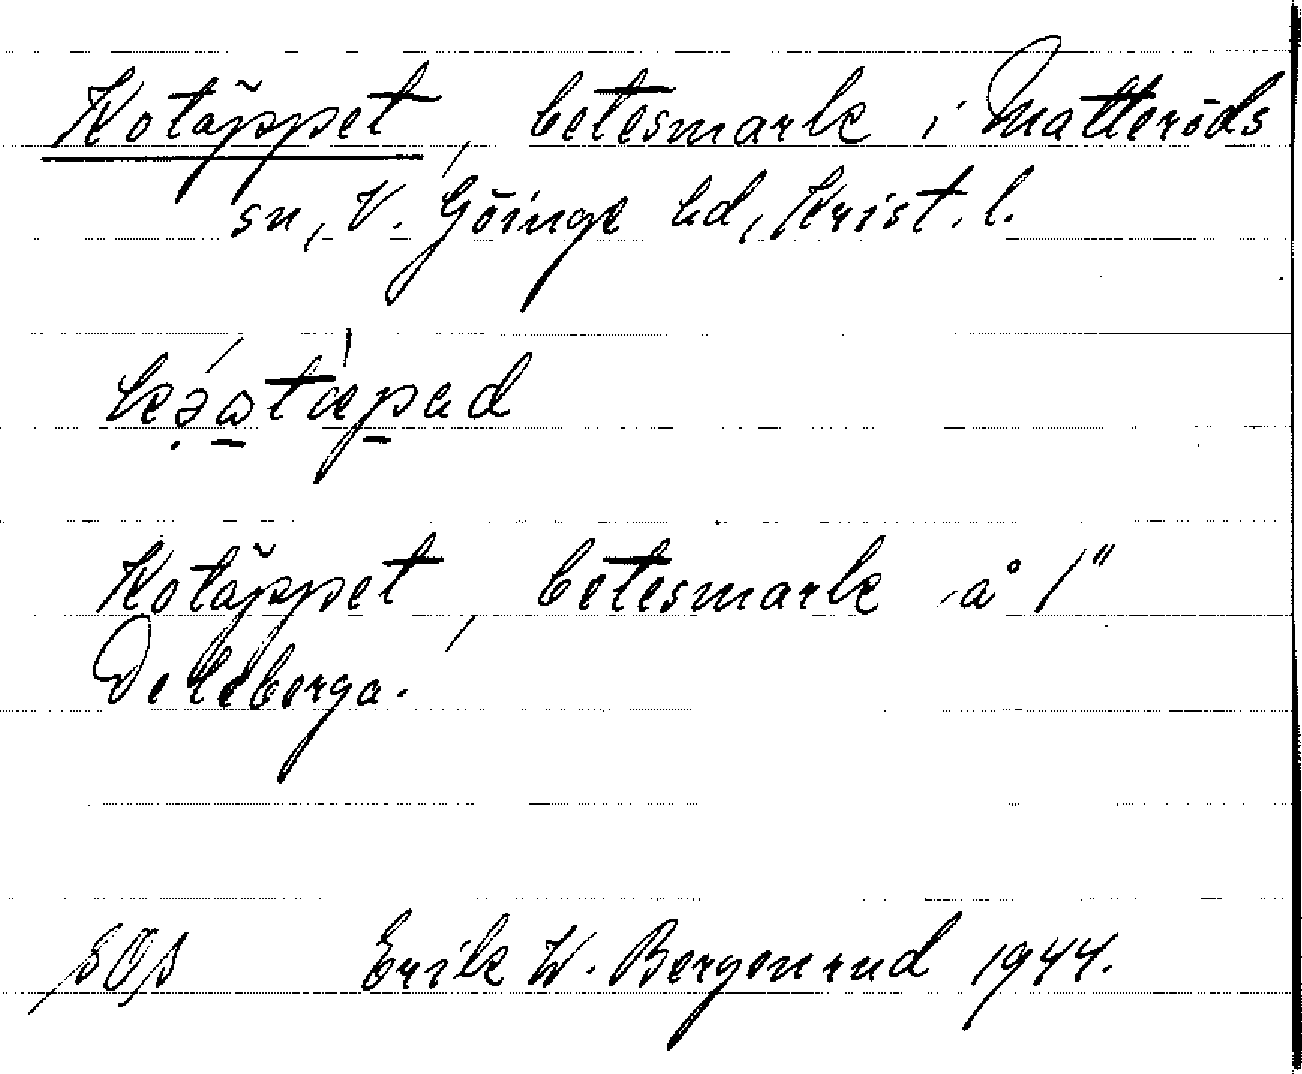 Kotäppet, betesmark i Matteröds
sn, V. Göinge hd, Krist. l.
Kotäppet, betesmark å 1"
Delleberga.
SOS Erik W. Bergenrud 1944.